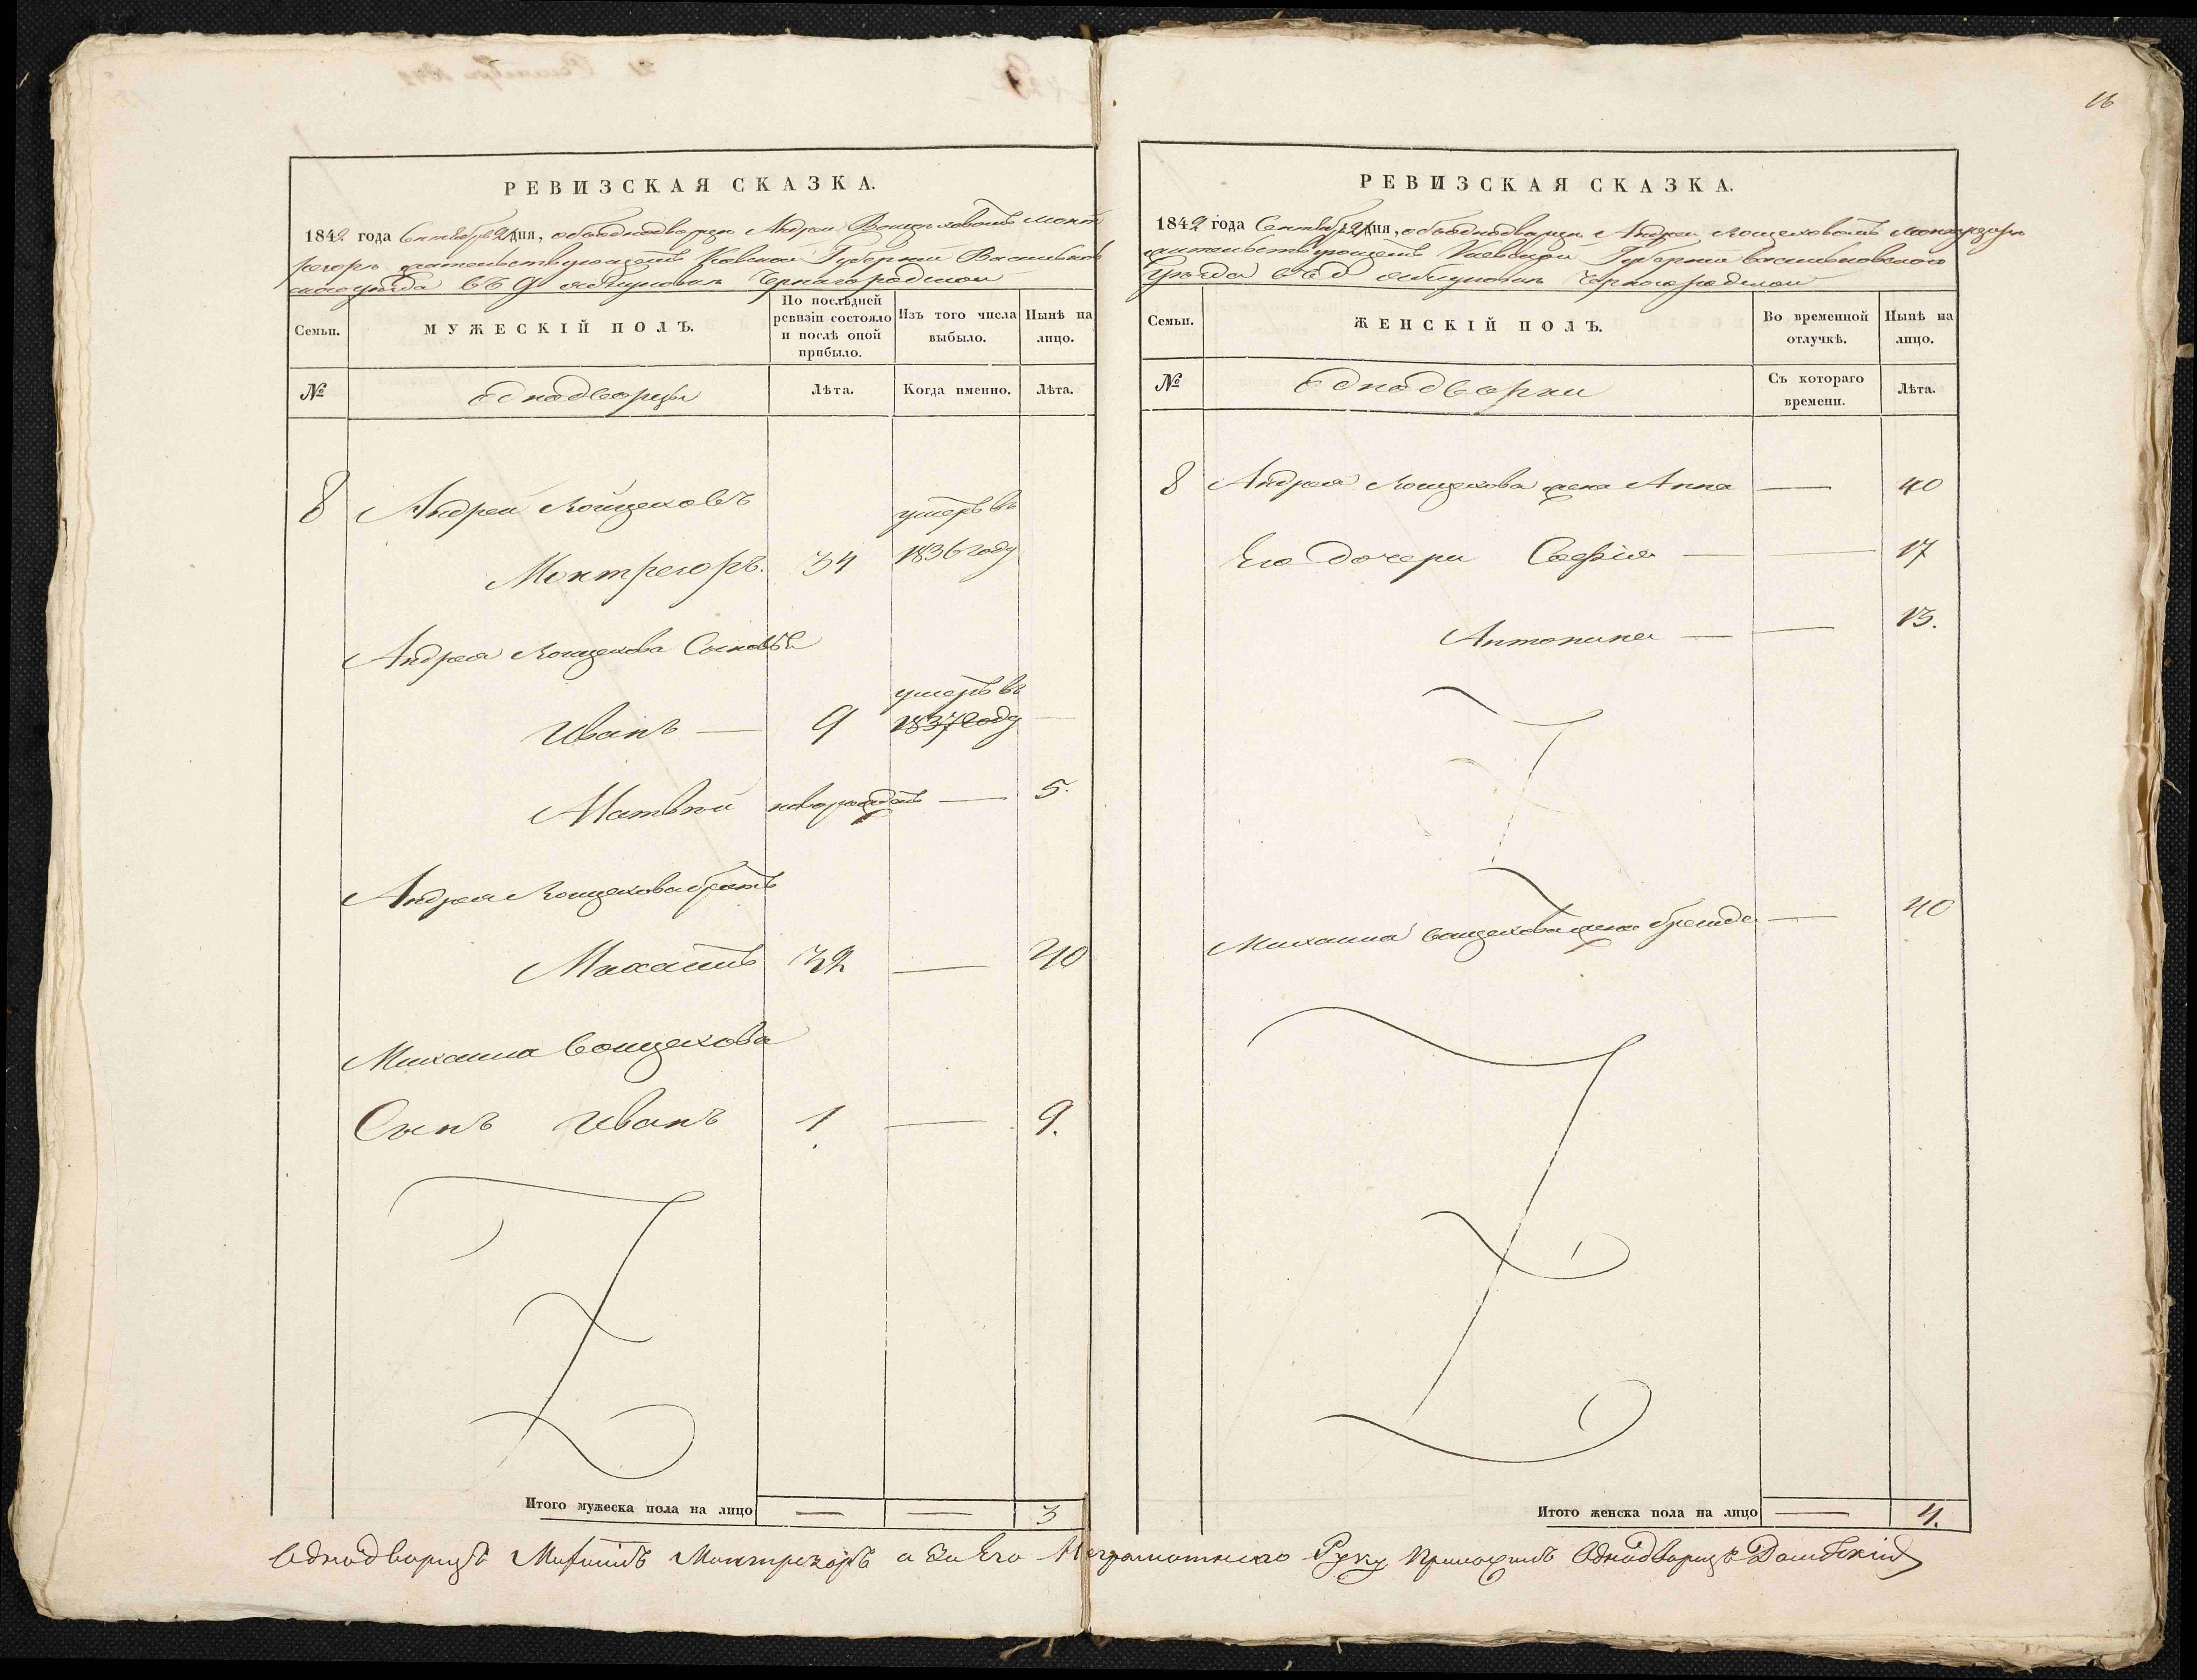 16
РЕВИЗСКАЯ СКАЗКА.
1842 года Сентября 21 дня, объ однодворце Андреи Войцеховомъ Монт
регоръ жительствующемъ Киевской Губернии Васильков
скаго уезда въ
Семьи.
МУЖЕСКІЙ ПОЛЪ.
По послѣдней ревизіи состояло и послѣ оной прибыло.
Изъ того числа выбыло.
Нынѣ на лицо.
№
однодворцы
Лѣта.
Когда именно.
Лѣта.
8 Андрей Войцеховъ умеръ въ
Монтрегоръ. 34 1836 году
Андрея Войцехова Сыновья
умеръ въ
Иванъ — 9 1837 году —
Матвей новорожденъ — 5.
Андрея Войцехова братъ
Михаилъ 32 — 40
Михаила Войцехова
Сынъ Иванъ 1. — 9.
Итого мужеска пола на лицо — — 3
РЕВИЗСКАЯ СКАЗКА.
1842 года Сентября 21 дня, объ однодворце Андреи Войцеховомъ Монтрегоръ
жительствующемъ Киевской Губернии Васильковскаго
Уезда
Семьи.
ЖЕНСКІЙ ПОЛЪ.
Во временной отлучкѣ.
Нынѣ на лицо.
№
однодворки
Съ котораго времени.
Лѣта.
8 Андрея Войцехова жена Анна — 40
Его дочери Софія — — 17
Антонина — — 13.
Михаила Войцехова жена — 40
Итого женска пола на лицо — 4.
Однодворецъ Михаилъ Монтрекоръ а За Его Неграмотнаго Руку Приложилъ Однодворецъ